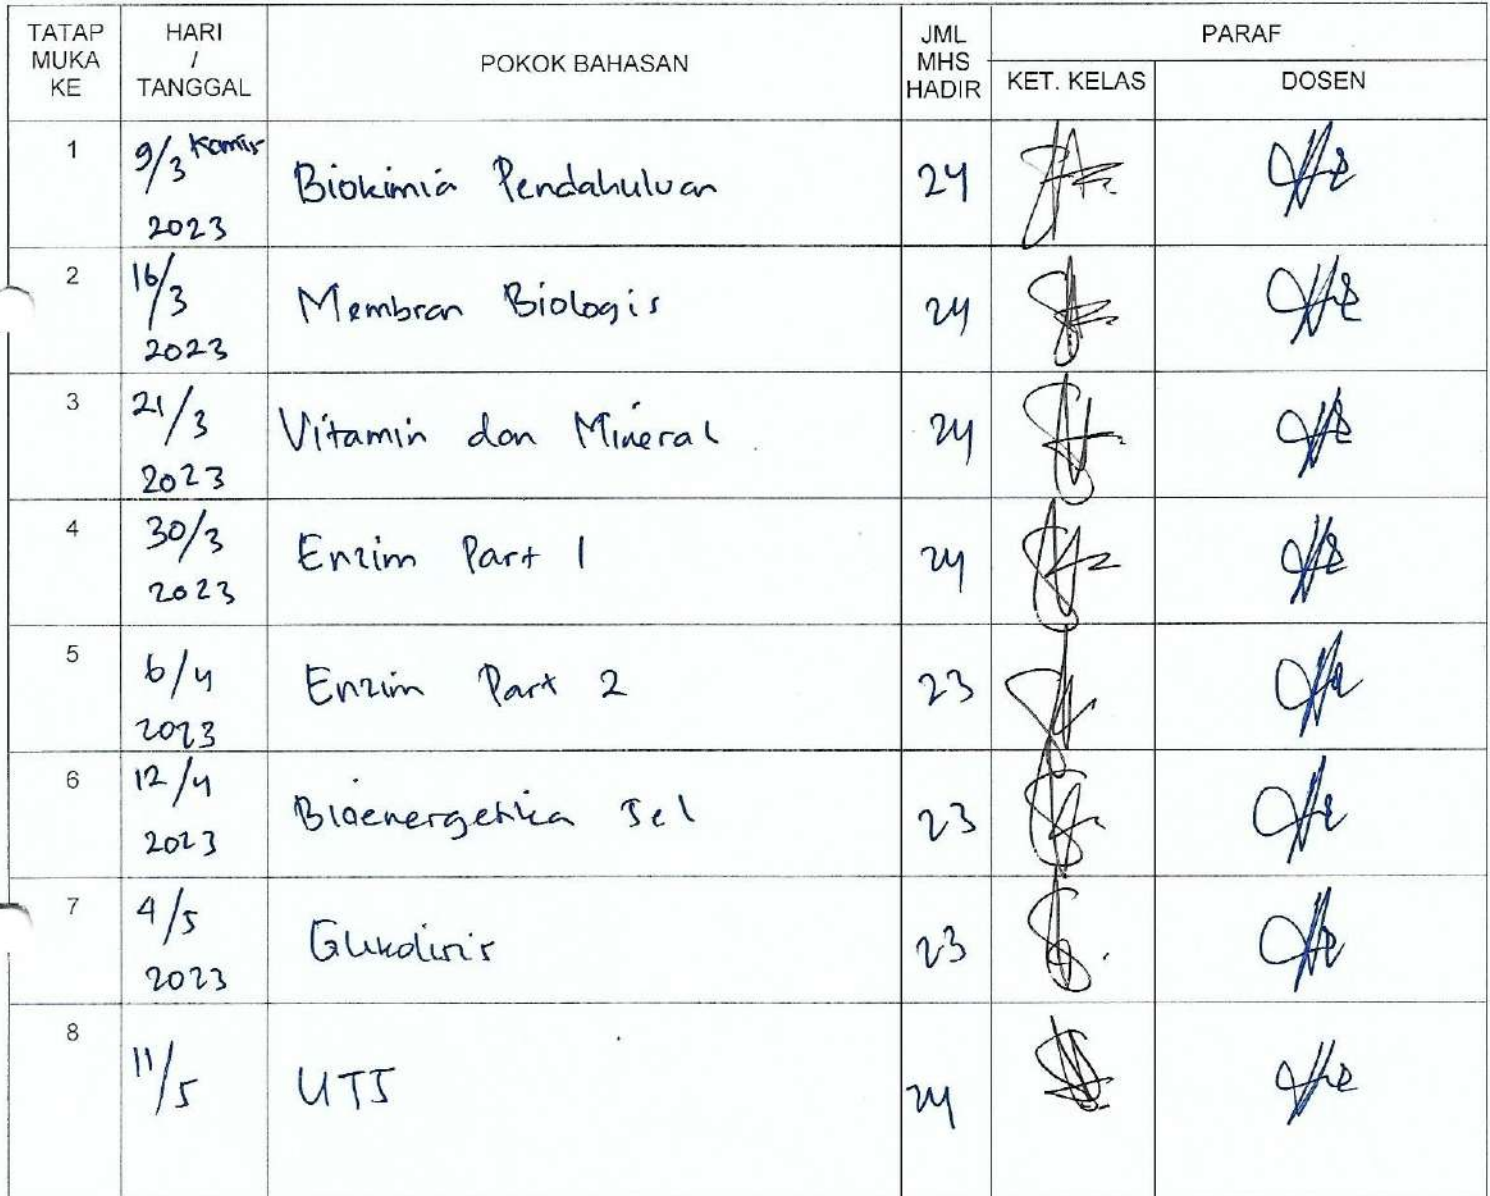 TATAP MUKA KE HARI / TANGGAL POKOK BAHASAN JML MHS HADIR PARAF
KET. KELAS DOSEN
1 9/3 Kamis 2023 Biokimia Pendahuluan 24
2 16/3 2023 Membran Biologis 24
3 21/3 2023 Vitamin dan Mineral 24
4 30/3 2023 Enzim Part 1 24
5 6/4 2023 Enzim Part 2 23
6 12/4 2023 Bioenergetika Sel 23
7 4/5 2023 Glikolisis 23
8 11/5 UTS 24